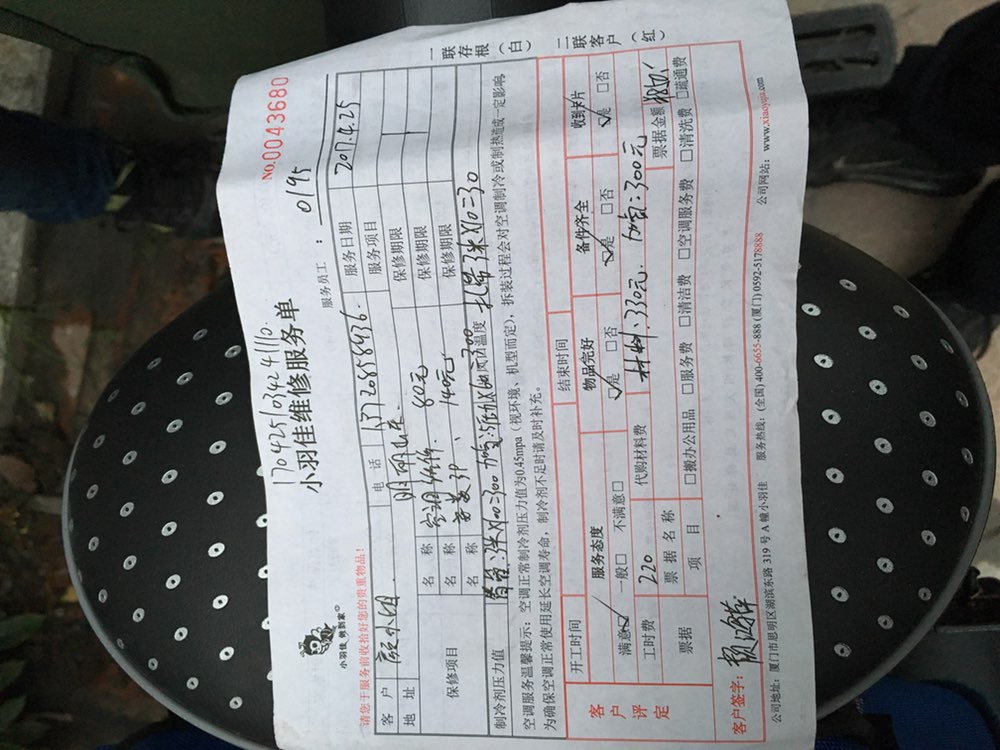 170425103424110.
小羽佳维修服务单
NO.0043680
服务员工：0195
小羽佳 快到家
请您于服务前收拾好您的贵重物品！
客户 电话 服务日期 2017.4.25
地址 服务项目
保修项目 名称 空调 80元 保修期限
名称 140元 保修期限
名称 保修期限
制冷剂压力值
管:3米X100=300 扎带3米X10=30
空调服务温馨提示：空调正常制冷剂压力值为0.45mpa（视环境、机型而定），拆装过程会对空调制冷或制热造成一定影响
为确保空调正常使用延长空调寿命，制冷剂不足时请及时补充。
一联存根（白）
二联客户（红）
开工时间 结束时间
客户评定
服务态度 物品完好 备件齐全 收到卡片
满意☑ 一般□ 不满意□ ☑是 □否 ☑是 □否 ☑是 □否
工时费 220 代购材料费 材料:330元. 加氟:300元
票据 票据名称 票据金额
项目 □搬办公用品 □服务费 □清洁费 □空调服务费 □清洗费 □疏通费
客户签字：
公司地址：厦门市思明区湖滨东路 319 号 A 幢小羽佳 服务热线：(全国) 400-6655-888 (厦门) 0592-5178888 公司网站：www.xiaoyujia.com